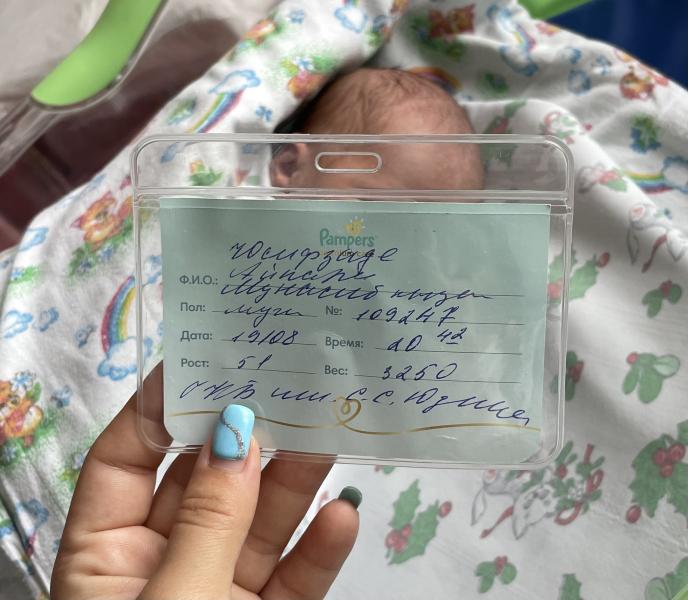 Pampers
Юсифзаде
Ф.И.О.: Айпара
Мунасиб кызы
Пол: муж №: 109247
Дата: 19/08 Время: 20 42
Рост: 51 Вес: 3250
им. С.С. Юдина